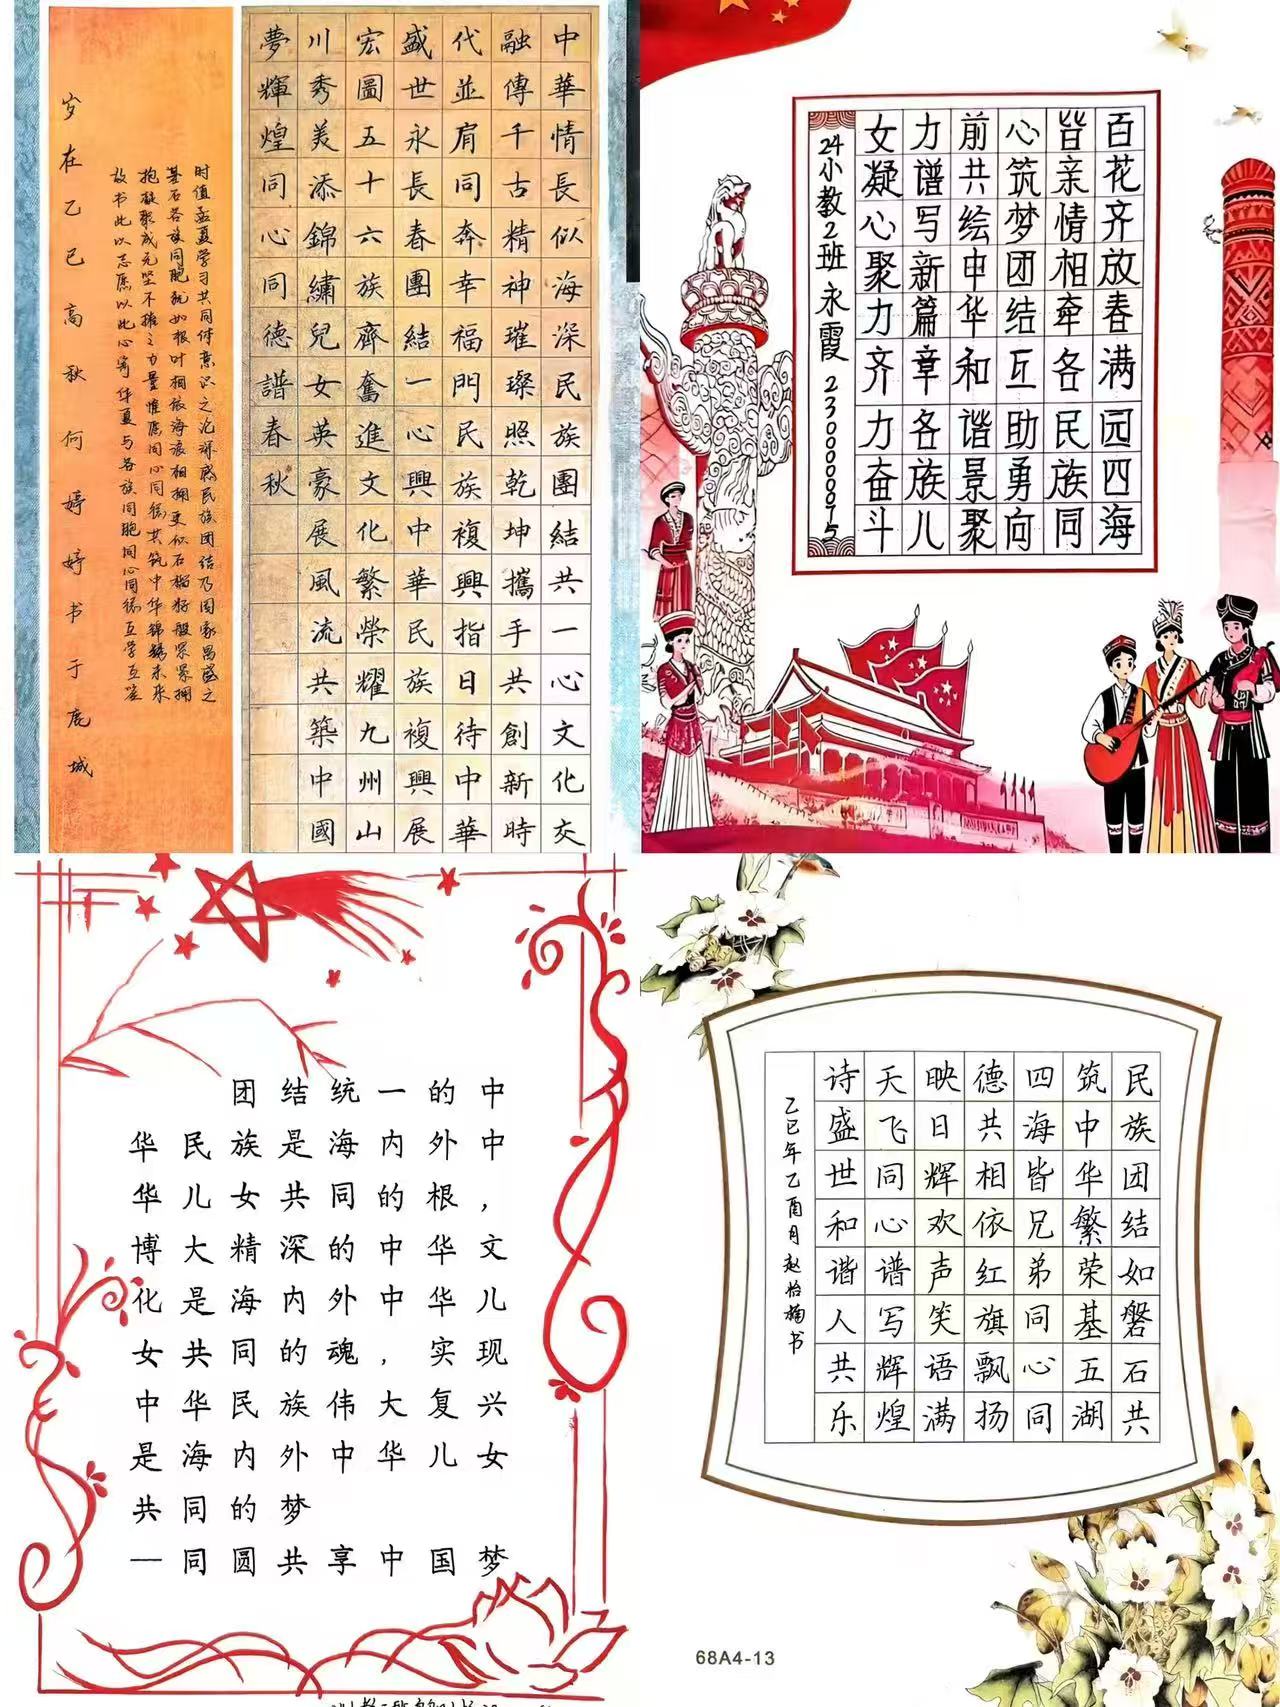 中華情長似海深民族團結共一心文化交
融傳千古精神璀璨照乾坤攜手共創新時
代並肩同奔幸福門民族複興指日待中華
盛世永長春團結一心興中華民族複興展
宏圖五十六族齊奮進文化繁榮耀九州山
川秀美添錦繡兒女英豪展風流共築中國
夢輝煌同心同德譜春秋
时值孟夏学习共同体意识之论述感民族团结乃国家昌盛之
基石各族同胞犹如根叶相依海浪相拥更似石榴籽般紧紧拥
抱凝聚成无坚不摧之力量惟愿同心同德共筑中华锦绣未来
故书此以志愿以此心寄华夏与各族同胞同心同德互学互鉴
岁在乙巳高秋何婷婷书于鹿城
百花齐放春满园四海
皆亲情相牵各民族同
心筑梦团结互助勇向
前共绘中华和谐景聚
力谱写新篇章各族儿
女凝心聚力齐力奋斗
24小教2班永霞
团结统一的中
华民族是海内外中
华儿女共同的根，
博大精深的中华文
化是海内外中华儿
女共同的魂，实现
中华民族伟大复兴
是海内外中华儿女
共同的梦
—同圆共享中国梦
民族团结如磐石共
筑中华繁荣基五湖
四海皆兄弟同心同
德共相依红旗飘扬
映日辉欢声笑语满
天飞同心谱写辉煌
诗盛世和谐人共乐
乙巳年乙酉月赵怡楠书
68A4-13